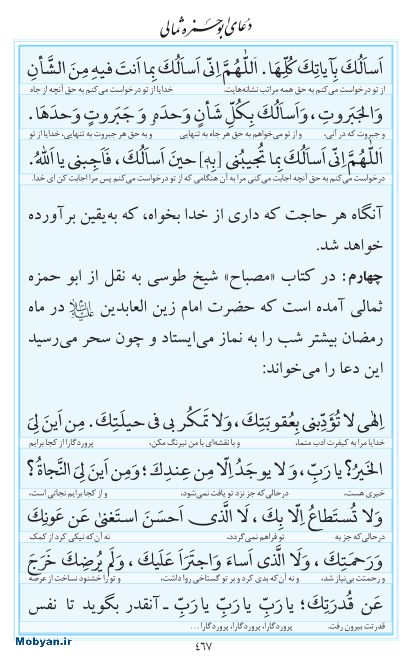 دعای ابوحمزه ثمالی
اَسأَلُكَ بِآیاتِكَ كُلِّهَا. اَللّٰهُمَّ اِنّی اَسأَلُكَ بِما اَنتَ فیهِ مِنَ الشَّأنِ
از تو درخواست می‌کنم به حق همه مراتب نشانه‌هایت. خدایا از تو درخواست می‌کنم به حق آنچه از جاه
وَالجَبَروتِ، وَاَسأَلُكَ بِكُلِّ شَأنٍ وَحدَهُ وَ جَبَروتٍ وَحدَهَا.
و جبروت که در آنی، و از تو می‌خواهم به حق هر جاه به تنهایی و به حق هر جبروت به تنهایی، خدایا از تو
اَللّٰهُمَّ اِنّی اَسأَلُكَ بِما تُجیبُنی [بِهِ] حینَ اَسأَلُكَ، فَاَجِبنی یا اَللّٰهُ.
درخواست می‌کنم به حق آنچه اجابت می‌کنی مرا به آن هنگامی که از تو درخواست می‌کنم پس مرا اجابت کن ای خدا.
آنگاه هر حاجت که داری از خدا بخواه، که به‌یقین برآورده
خواهد شد.
چهارم: در کتاب «مصباح» شیخ طوسی به نقل از ابو حمزه
ثمالی آمده است که حضرت امام زین العابدین علیه‌السلام در ماه
رمضان بیشتر شب را به نماز می‌ایستاد و چون سحر می‌رسید
این دعا را می‌خواند:
اِلٰهی لا تُؤَدِّبنی بِعُقوبَتِكَ، وَلا تَمكُر بی فی حیلَتِكَ. مِن اَینَ لِیَ
خدایا مرا به کیفرت ادب منما، و با نقشه‌ای با من نیرنگ مکن، پروردگارا از کجا برایم
الخَیرُ؟ یا رَبِّ، وَلا یوجَدُ اِلّا مِن عِندِكَ؛ وَمِن اَینَ لِیَ النَّجاةُ؟
خیری هست، درحالی‌که جز نزد تو یافت نمی‌شود، و از کجا برایم نجاتی است،
وَلا تُستَطاعُ اِلّا بِكَ، لَا الَّذی اَحسَنَ استَغنیٰ عَن عَونِكَ
درحالی‌که جز به تو فراهم نمی‌گردد، نه آن‌که نیکی کرد از کمک
وَرَحمَتِكَ، وَلَا الَّذی اَساءَ وَاجتَرَأَ عَلَیكَ، وَلَم یُرضِكَ خَرَجَ
و رحمتت بی‌نیاز شد، و نه آن‌که بدی کرد و بر تو گستاخی روا داشت، و تو را خشنود نساخت از عرصه
عَن قُدرَتِكَ؛ یا رَبِّ یا رَبِّ یا رَبِّ ـ آنقدر بگوید تا نفس
قدرتت بیرون رفت. پروردگارا، پروردگارا، پروردگارا...
۴۶۷
Mobyan.ir